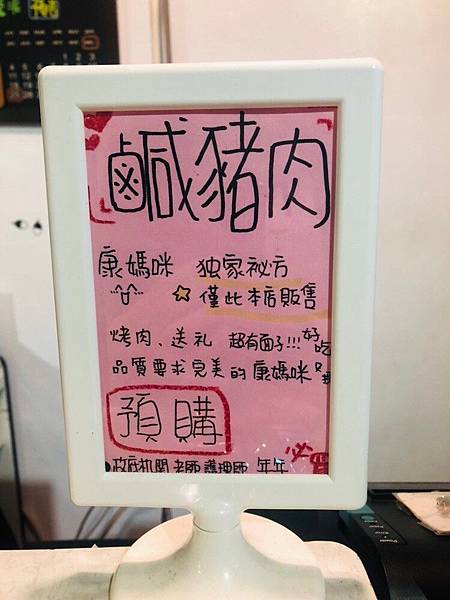 鹹豬肉
康媽咪 独家祕方
僅此本店販售
烤肉、送礼 超有面子!!! 好吃
品質要求完美的康媽咪
預購
政府机関 老師 護理師 年年
必